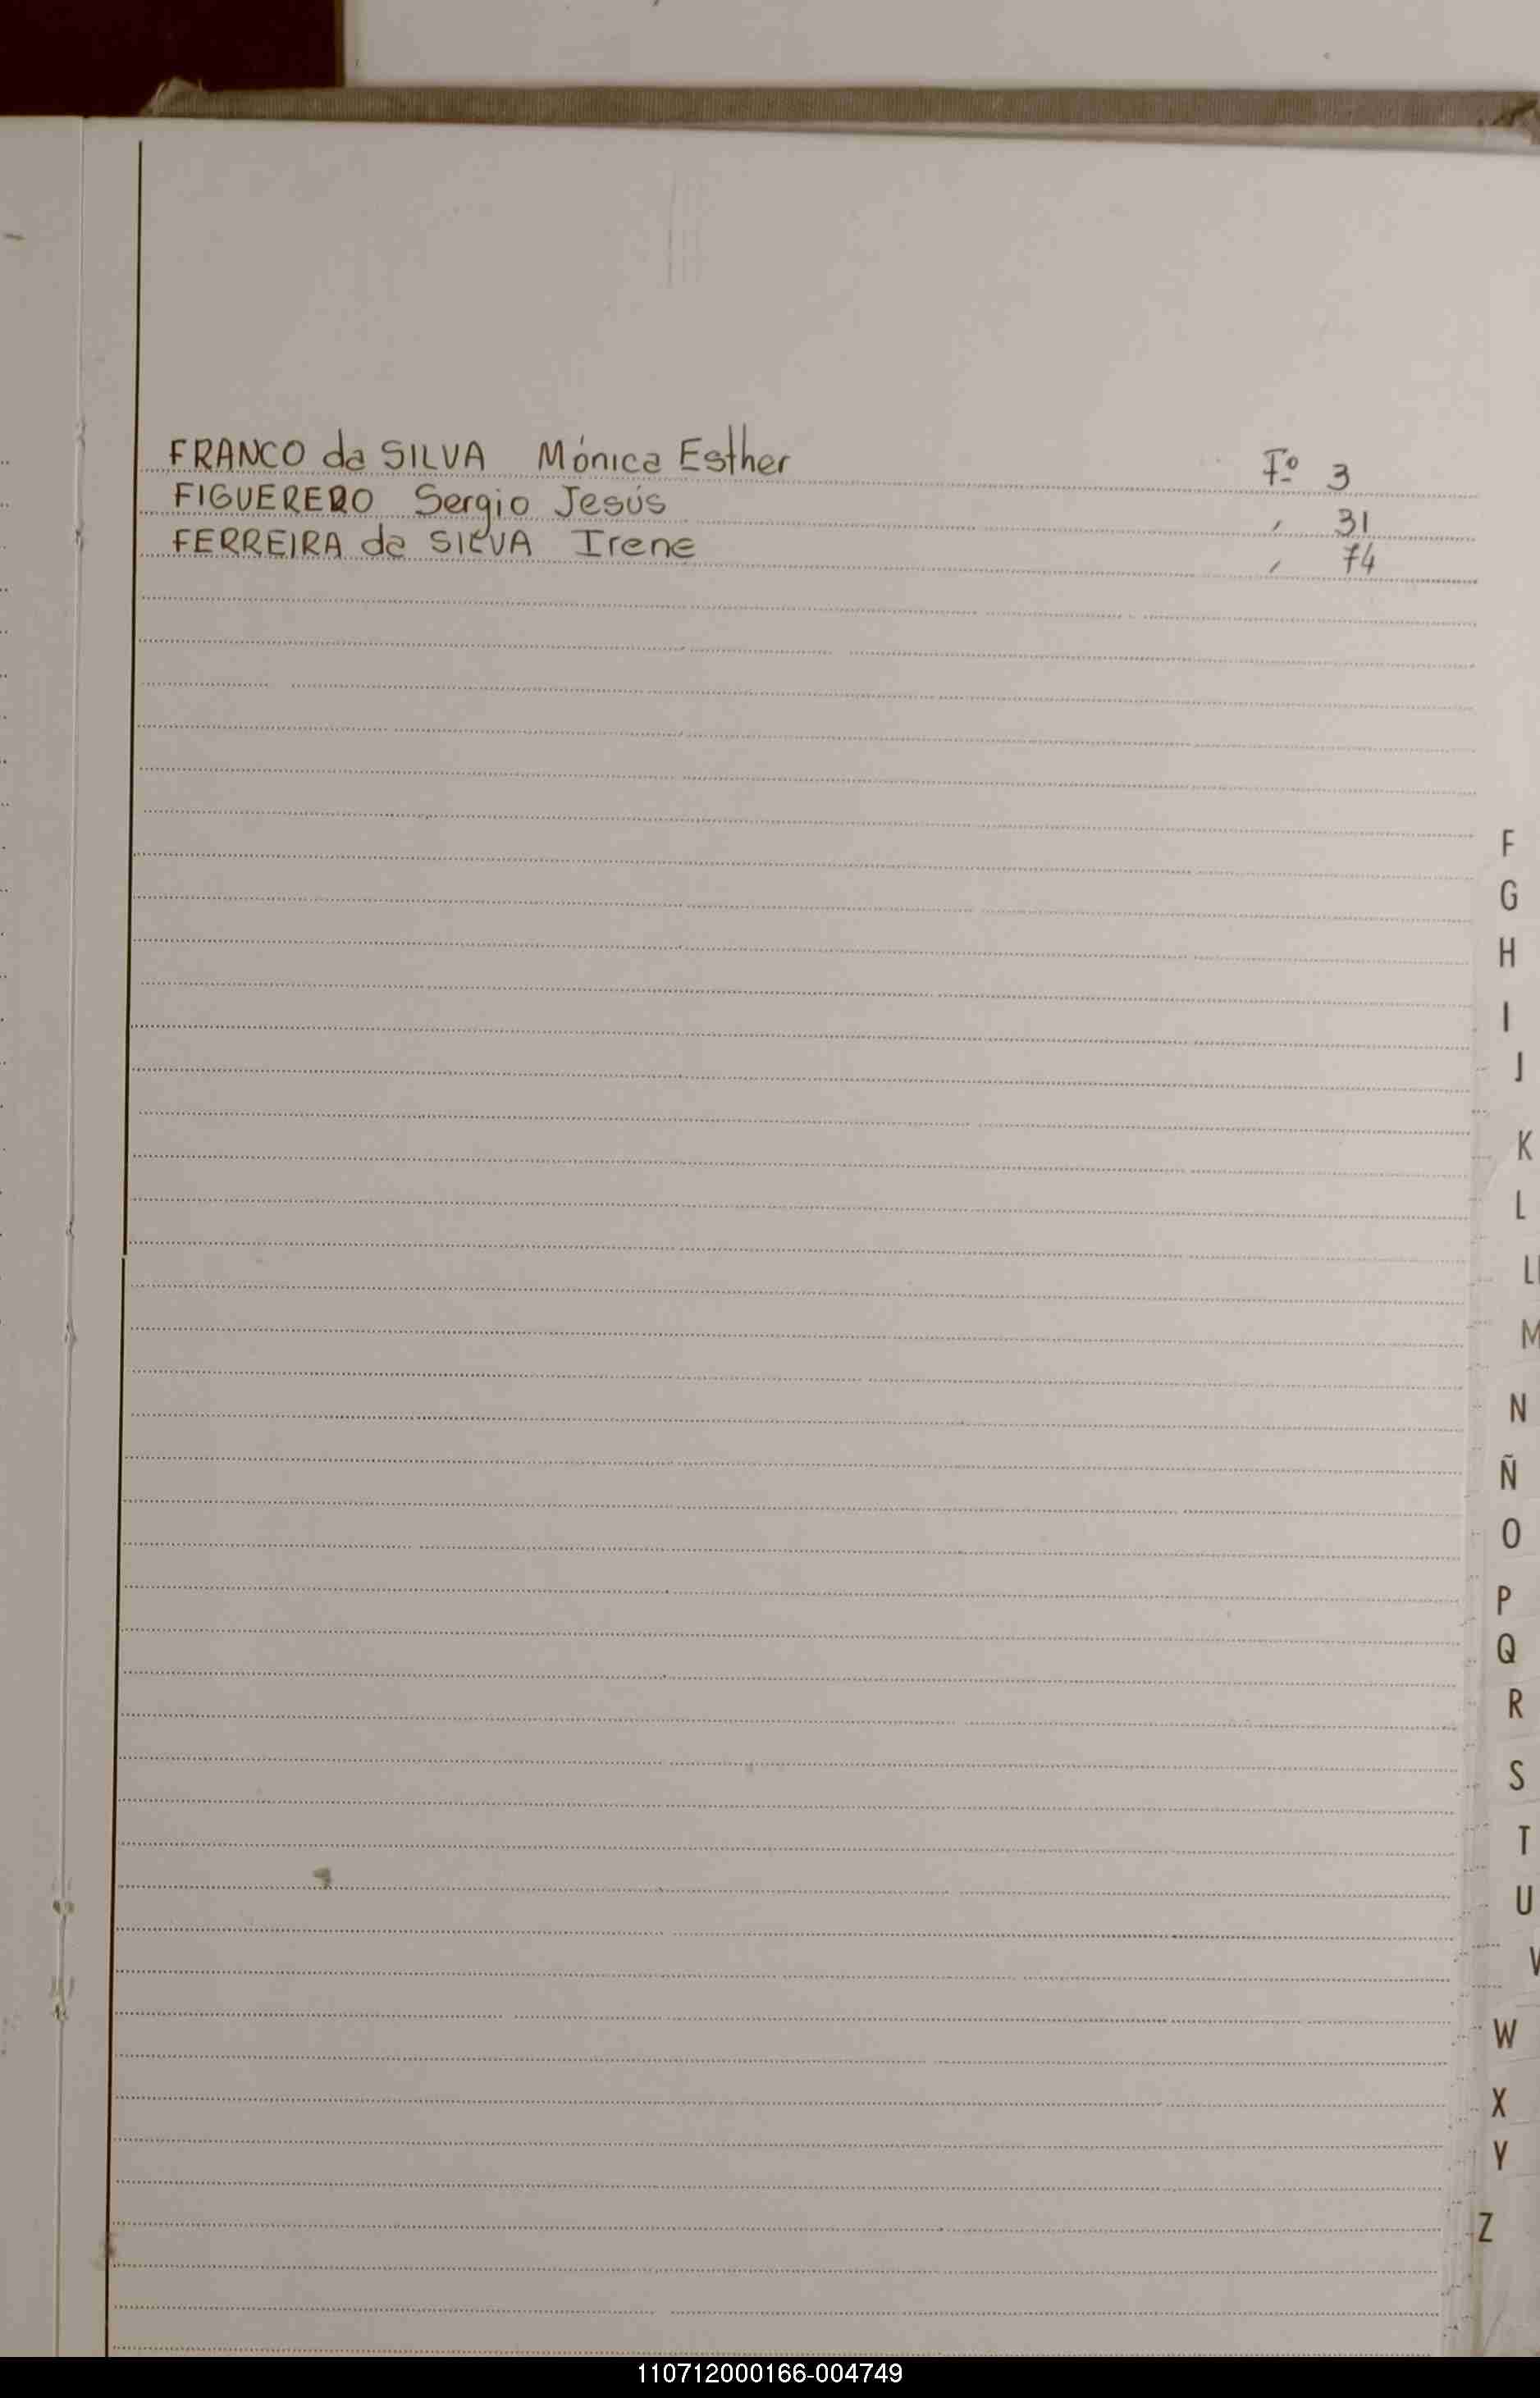 FRANCO da SILVA Mónica Esther Fº 3
FIGUEREDO Sergio Jesús " 31
FERREIRA da SILVA Irene " 74
F
G
H
I
J
K
L
Ll
M
N
Ñ
O
P
Q
R
S
T
U
V
W
X
Y
Z
110712000166-004749